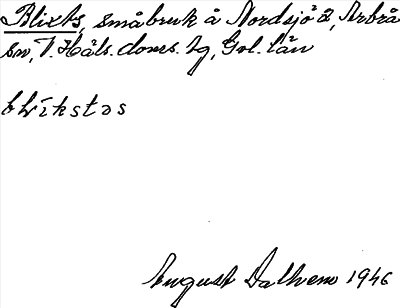 Blixts, småbruk å Nordsjö 2, Arbrå
sn, V. Häls. doms. hg, Gvl. län
blikstəs
August Dalhem 1946